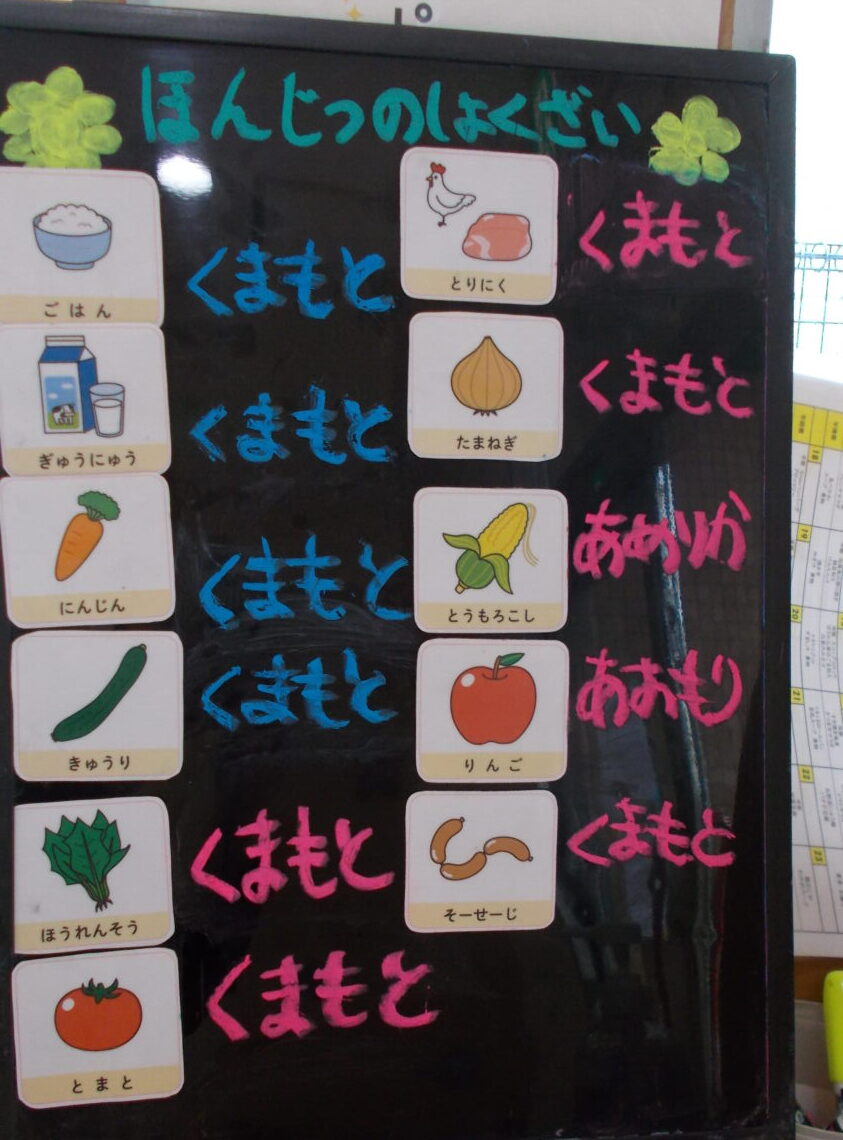 ほんじつのしょくざい
ごはん
くまもと
ぎゅうにゅう
くまもと
にんじん
くまもと
きゅうり
くまもと
ほうれんそう
くまもと
とまと
くまもと
とりにく
くまもと
たまねぎ
くまもと
とうもろこし
あめりか
りんご
あおもり
そーせーじ
くまもと
18
19
20
21
22
23